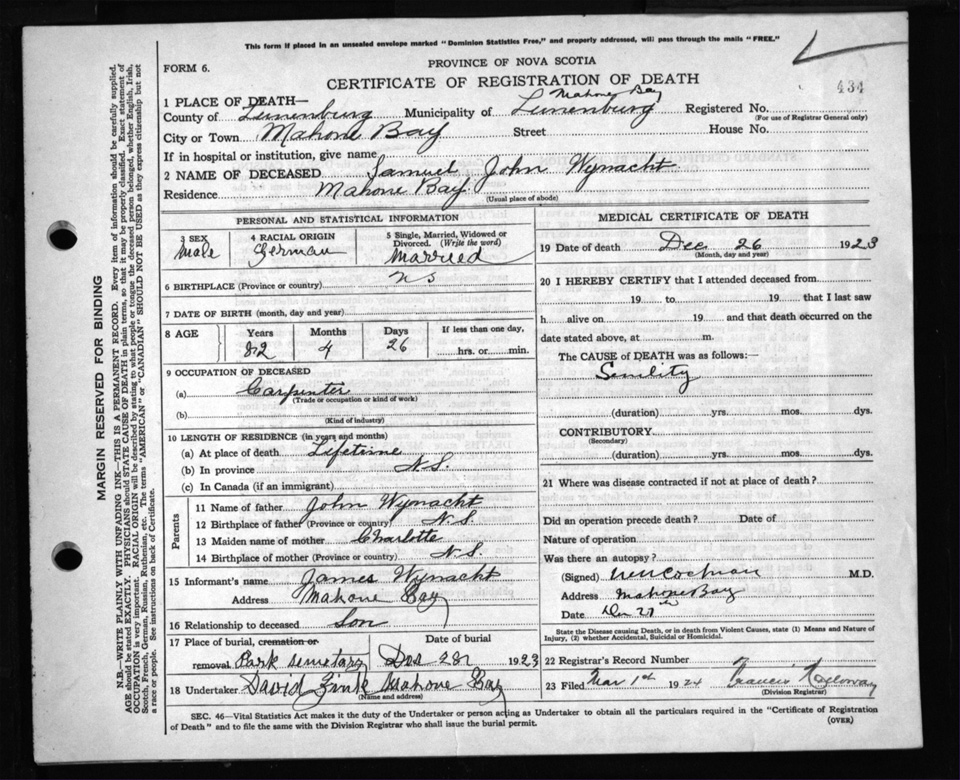 This form if placed in an unsealed envelope marked "Dominion Statistics Free," and properly addressed, will pass through the mails "FREE."
FORM 6.
PROVINCE OF NOVA SCOTIA
CERTIFICATE OF REGISTRATION OF DEATH
434
1 PLACE OF DEATH—
Mahone Bay
County of Lunenburg Municipality of Lunenburg Registered No.
(For use of Registrar General only)
City or Town Mahone Bay Street House No.
If in hospital or institution, give name
2 NAME OF DECEASED Samuel John Wynacht
Residence Mahone Bay
(Usual place of abode)
PERSONAL AND STATISTICAL INFORMATION
3 SEX 4 RACIAL ORIGIN 5 Single, Married, Widowed or Divorced. (Write the word)
Male German Married
6 BIRTHPLACE (Province or country) N S
7 DATE OF BIRTH (month, day and year)
8 AGE Years Months Days If less than one day,
82 4 26 hrs. or min.
9 OCCUPATION OF DECEASED
(a) Carpinter
(Trade or occupation or kind of work)
(b)
(Kind of industry)
10 LENGTH OF RESIDENCE (in years and months)
(a) At place of death Lifetime
(b) In province N.S.
(c) In Canada (if an immigrant)
Parents
11 Name of father John Wynacht
12 Birthplace of father (Province or country) N.S.
13 Maiden name of mother Charlotte
14 Birthplace of mother (Province or country) N.S.
15 Informant's name James Wynacht
Address Mahone Bay
16 Relationship to deceased Son
17 Place of burial, cremation or removal Date of burial
Park semetary 28 1923
18 Undertaker David Zink Mahone Bay
(Name and address)
MEDICAL CERTIFICATE OF DEATH
19 Date of death Dec 26 1923
(Month, day and year)
20 I HEREBY CERTIFY that I attended deceased from
19 to 19 that I last saw
h alive on 19 and that death occurred on the
date stated above, at m.
The CAUSE of DEATH was as follows:—
Senility
(duration) yrs. mos. dys.
CONTRIBUTORY
(Secondary)
(duration) yrs. mos. dys.
21 Where was disease contracted if not at place of death?
Did an operation precede death? Date of
Nature of operation
Was there an autopsy?
(Signed) Cochran M.D.
Address Mahone Bay
Date 27th
State the Disease causing Death, or in death from Violent Causes, state (1) Means and Nature of Injury, (2) whether Accidental, Suicidal or Homicidal.
22 Registrar's Record Number
23 Filed Mar 1st 1924 Francis
(Division Registrar)
SEC. 46—Vital Statistics Act makes it the duty of the Undertaker or person acting as Undertaker to obtain all the particulars required in the "Certificate of Registration
of Death" and to file the same with the Division Registrar who shall issue the burial permit. (OVER)
MARGIN RESERVED FOR BINDING
N.B.—WRITE PLAINLY WITH UNFADING INK—THIS IS A PERMANENT RECORD. Every item of information should be carefully supplied.
AGE should be stated EXACTLY. PHYSICIANS should STATE CAUSE OF DEATH in plain terms, so that it may be properly classified. Exact statement of
OCCUPATION is very important. RACIAL ORIGIN will be described by stating to what people or tongue the deceased person belonged, whether English, Irish,
Scotch, French, German, Russian, Ruthenian, etc. The terms "AMERICAN" or "CANADIAN" SHOULD NOT BE USED as they express citizenship but not
a race or people. See instructions on back of Certificate.